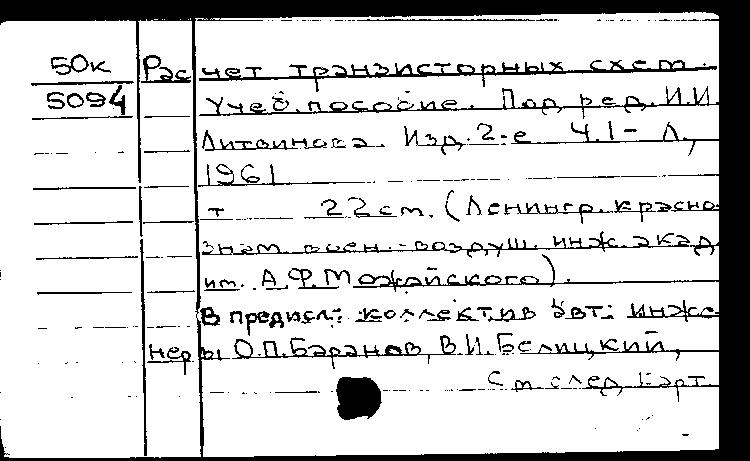 50к Рас чет транзисторных схем.
5094 Учеб. пособие. Под ред. И.И.
Литвинова. Изд. 2-е Ч.1- Л.,
1961
т 22 см. (Ленингр. красно-
знам. воен.-воздуш. инж. акад.
им. А.Ф. Можайского).
В предисл.: коллектив авт.: инже
нер ы О.П. Баранов, В.И. Белицкий,
См. след. карт.